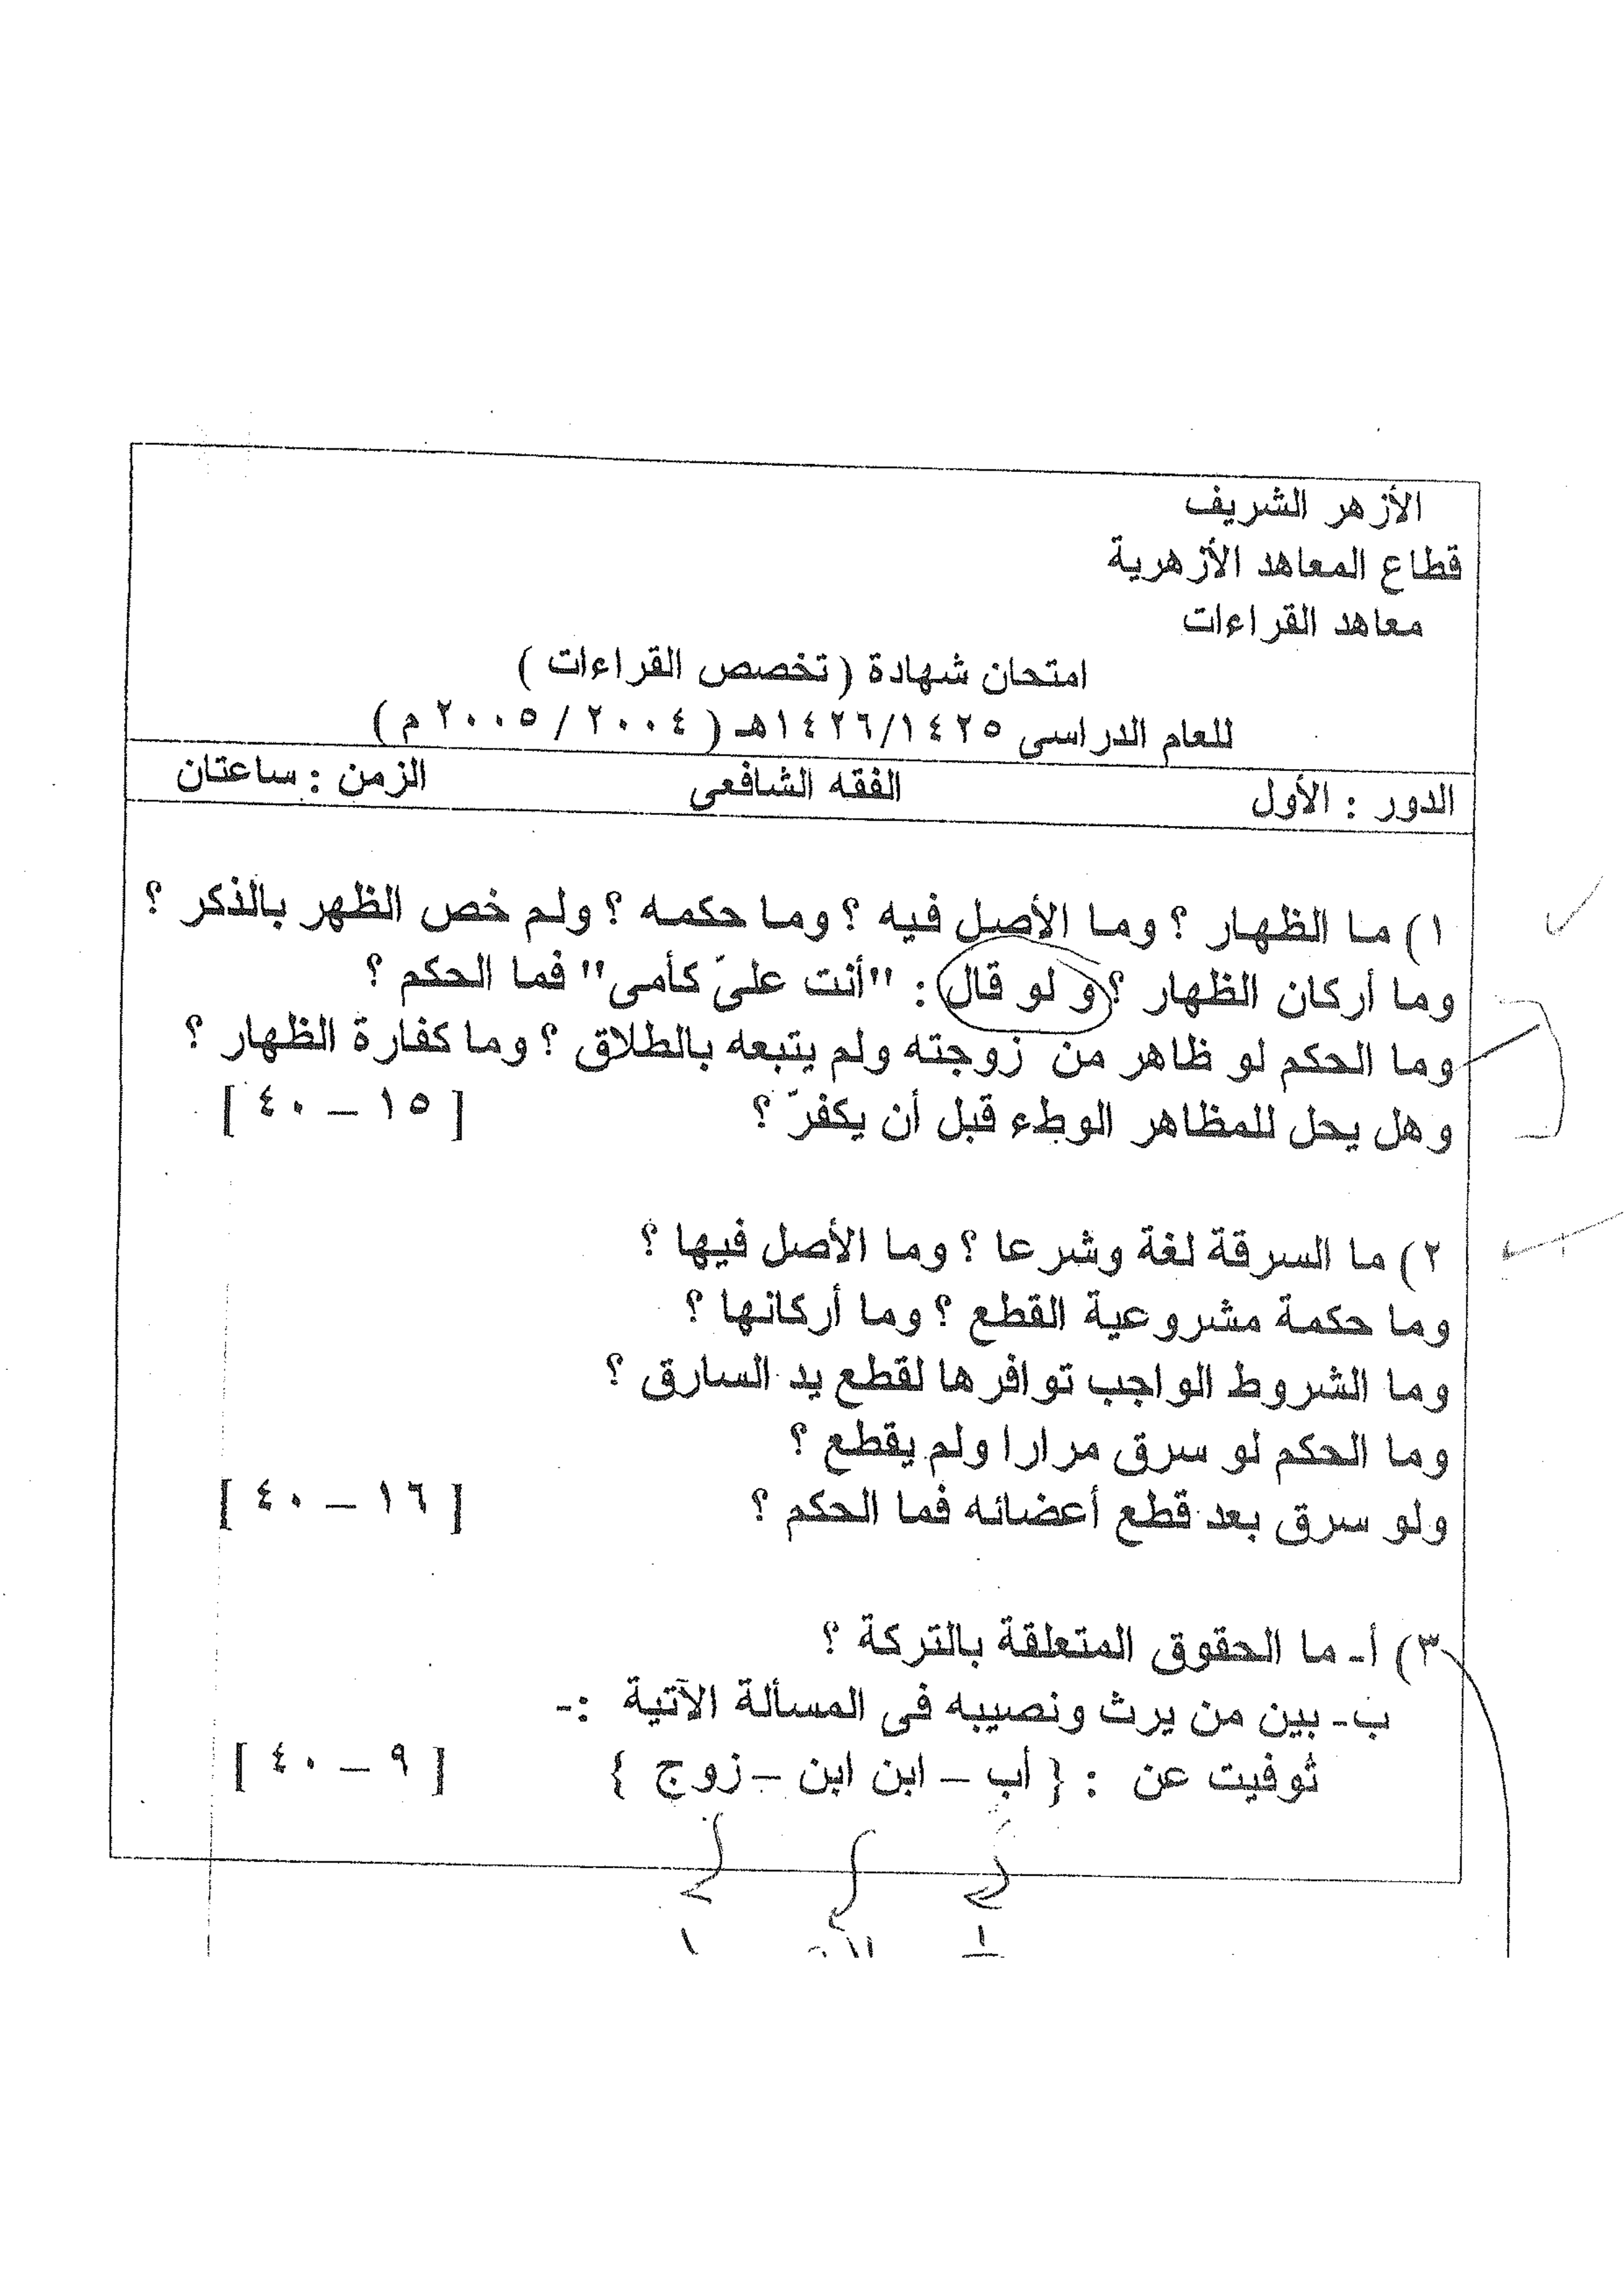 الأزهر الشريف
قطاع المعاهد الأزهرية
معاهد القراءات
امتحان شهادة ( تخصص القراءات )
للعام الدراسى ١٤٢٦/١٤٢٥هـ ( ٢٠٠٤ / ٢٠٠٥ م )
الدور : الأول الفقه الشافعى الزمن : ساعتان
١) ما الظهار ؟ وما الأصل فيه ؟ وما حكمه ؟ ولم خص الظهر بالذكر ؟
وما أركان الظهار ؟ و لو قال : "أنت علىّ كأمى" فما الحكم ؟
وما الحكم لو ظاهر من زوجته ولم يتبعه بالطلاق ؟ وما كفارة الظهار ؟
وهل يحل للمظاهر الوطء قبل أن يكفرّ ؟ [ ١٥ – ٤٠ ]
٢) ما السرقة لغة وشرعا ؟ وما الأصل فيها ؟
وما حكمة مشروعية القطع ؟ وما أركانها ؟
وما الشروط الواجب توافرها لقطع يد السارق ؟
وما الحكم لو سرق مرارا ولم يقطع ؟
ولو سرق بعد قطع أعضائه فما الحكم ؟ [ ١٦ – ٤٠ ]
٣) أ- ما الحقوق المتعلقة بالتركة ؟
ب- بين من يرث ونصيبه فى المسألة الآتية :-
توفيت عن : { أب – ابن ابن – زوج } [ ٩ – ٤٠ ]